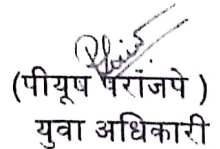 (पीयूष परांजपे )
युवा अधिकारी